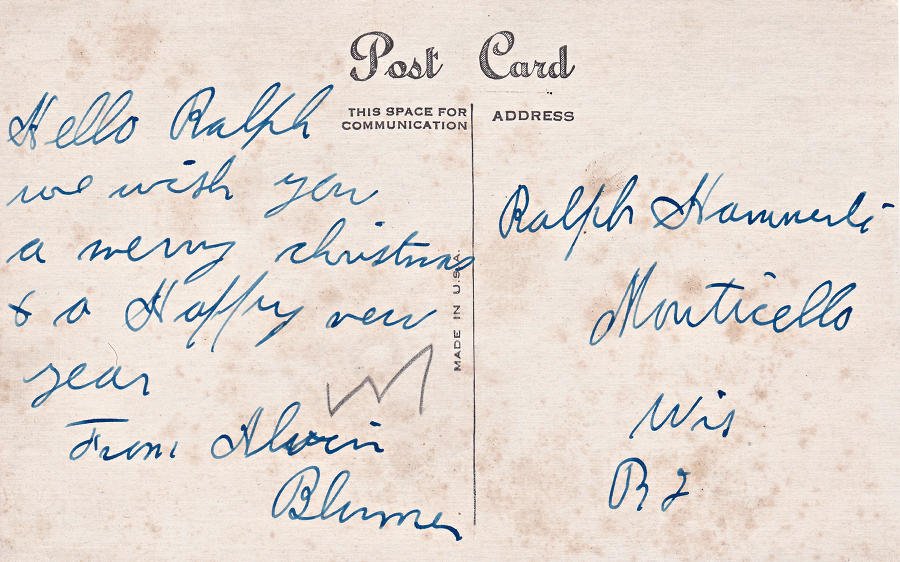 Post Card
THIS SPACE FOR
COMMUNICATION
ADDRESS
Hello Ralph
we wish you
a merry christmas
& a Happy new
year
From Alvin
Blumer
MADE IN U.S.A.
Ralph Hammerli
Monticello
Wis
R 2